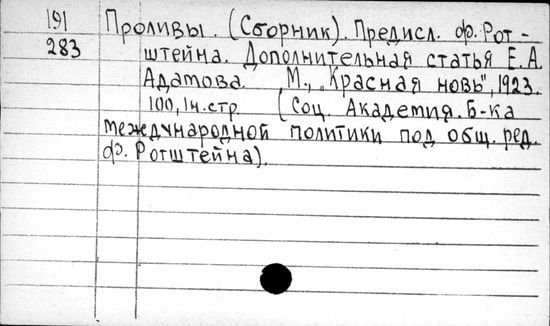 191 Проливы. (Сборник). Предисл. Ф. Рот-
283 штейна. Дополнительная статья Е.А.
Адамова. М., "Красная новь", 1923.
100, 1н. стр. (Соц. Академия. Б-ка
международной политики под общ. ред.
Ф. Ротштейна).